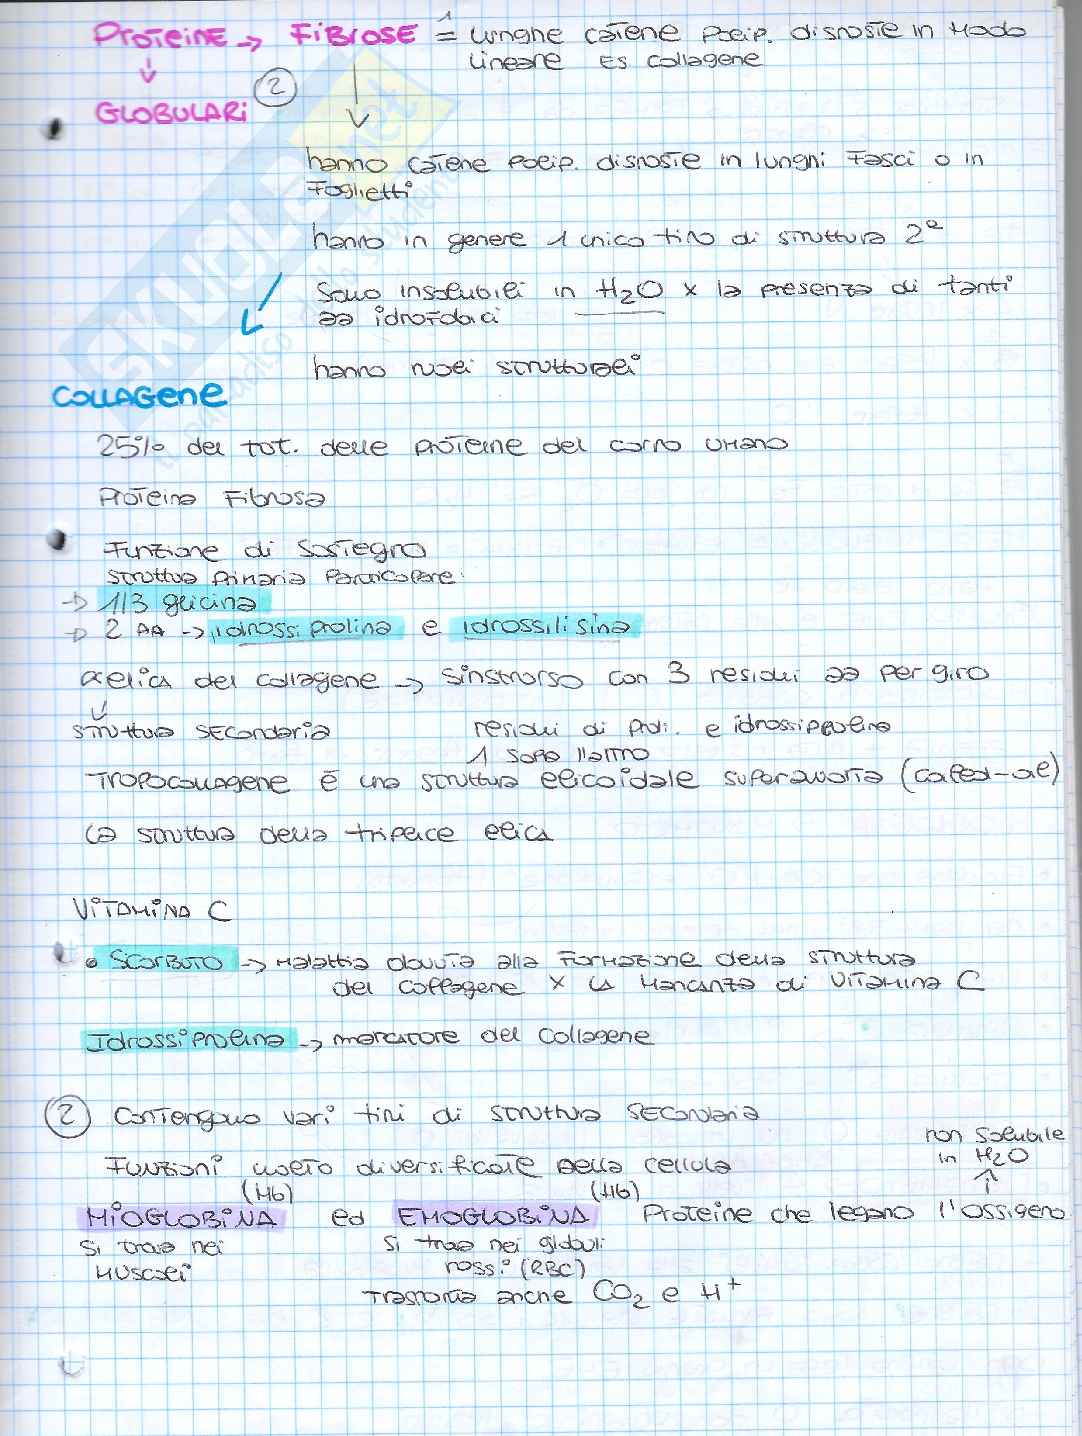 PROTEINE → FIBROSE = lunghe catene polip. disposte in modo
1
lineare ES collagene
GLOBULARI
2
hanno catene polip. disposte in lunghi fasci o in
foglietti
hanno in genere 1 unico tipo di struttura 2ª
Sono insolubili in H2O x la presenza di tanti
aa idrofobici
hanno ruoli strutturali
COLLAGENE
25% del tot. delle proteine del corpo umano
Proteina Fibrosa
Funzione di sostegno
struttura primaria particolare:
→ 1/3 glicina
→ 2 AA → idrossiprolina e idrossilisina
αelica del collagene → sinstrorso con 3 residui aa per giro
struttura secondaria residui di proli. e idrossiprolina
1 sopra l'altro
TROPOCOLLAGENE è una struttura elicoidale superavvolta (coiled-
La struttura della triplice elica
VITAMINA C
• SCORBUTO → malattia dovuta alla formazione della struttura
del collagene x la mancanza di vitamina C
Idrossiprolina → marcatore del collagene
2 Contengono vari tipi di struttura secondaria
non solubile
in H2O
Funzioni molto diversificate della cellula
(Mb) (Hb)
MIOGLOBINA ed EMOGLOBINA Proteine che legano l'ossigeno
si trova nei si trova nei globuli
muscoli rossi (RBC)
Trasporta anche CO2 e H+
SKUOLA.net